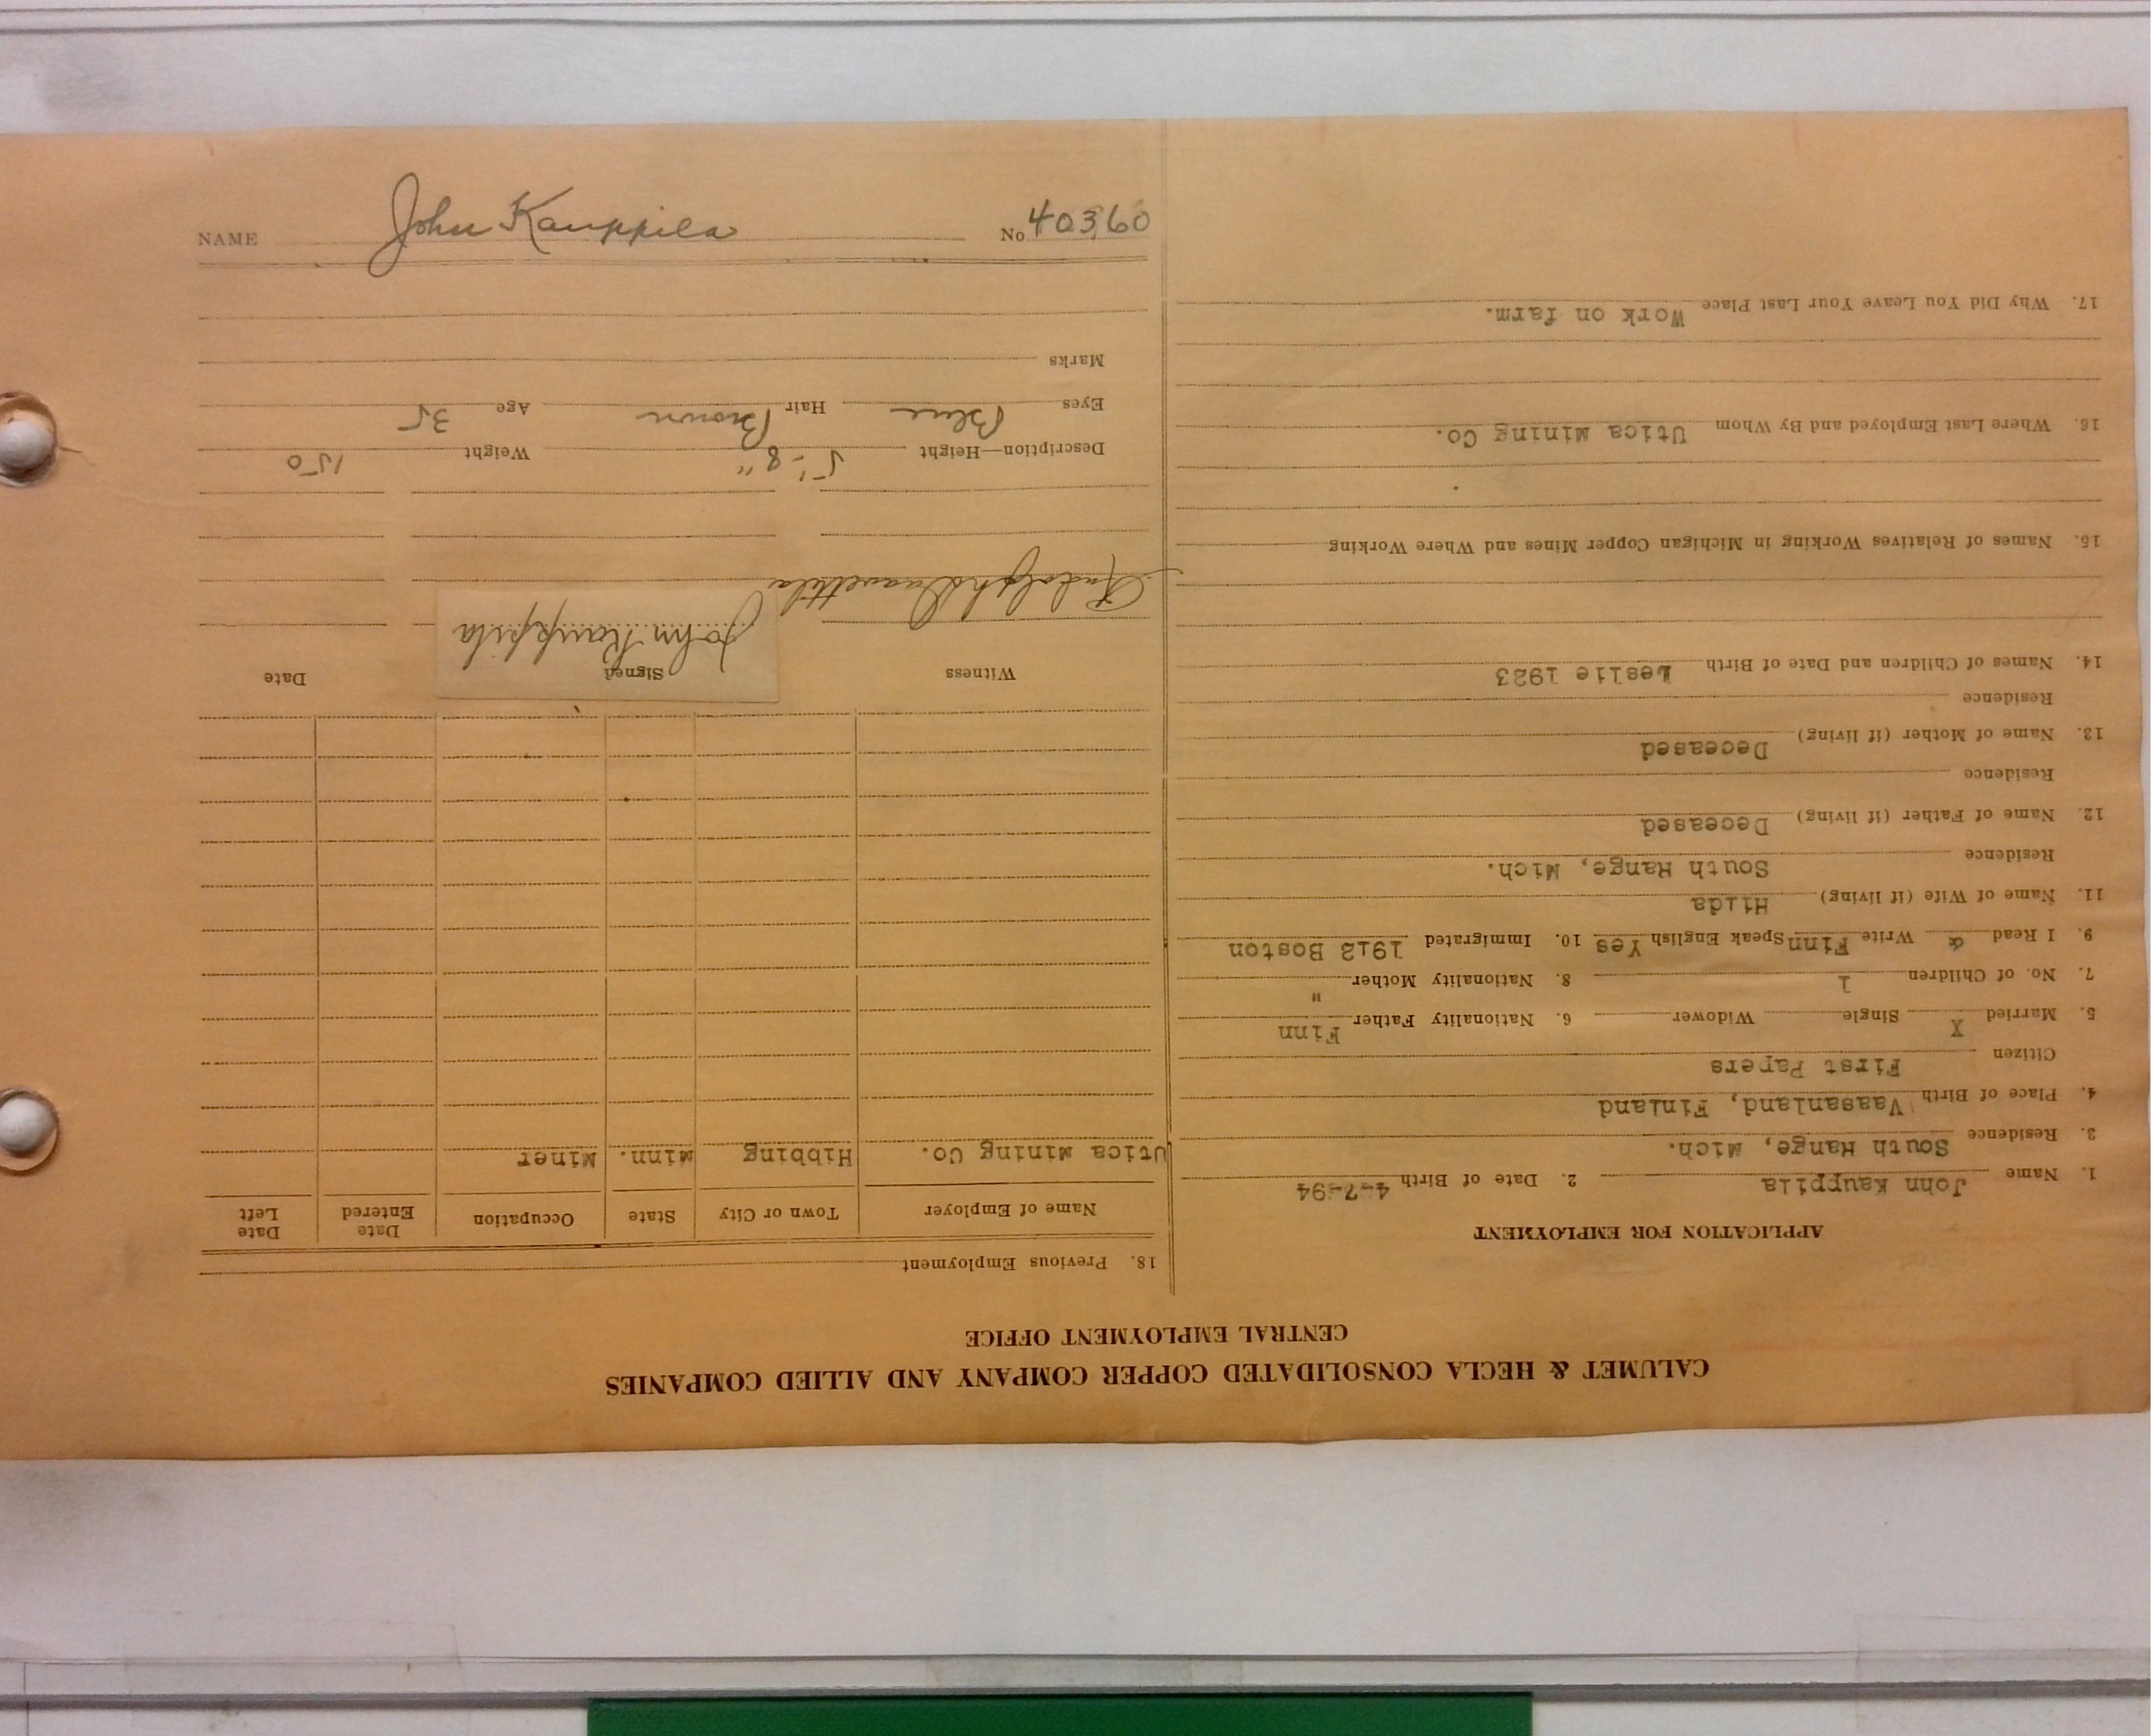 CALUMET & HECLA CONSOLIDATED COPPER COMPANY AND ALLIED COMPANIES
CENTRAL EMPLOYMENT OFFICE
APPLICATION FOR EMPLOYMENT
1. Name John Kauppila 2. Date of Birth 4-7-94
3. Residence South Range, Mich.
4. Place of Birth Vaasanland, Finland
Citizen First Papers
5. Married X Single Widower 6. Nationality Father Finn
7. No. of Children 1 8. Nationality Mother "
9. I Read & Write Finn Speak English Yes 10. Immigrated 1912 Boston
11. Name of Wife (if living) Hilda
Residence South Range, Mich.
12. Name of Father (if living) Deceased
Residence
13. Name of Mother (if living) Deceased
Residence
14. Names of Children and Date of Birth Leslie 1923
15. Names of Relatives Working in Michigan Copper Mines and Where Working
16. Where Last Employed and By Whom Utica Mining Co.
17. Why Did You Leave Your Last Place Work on farm.
18. Previous Employment
Name of Employer Town or City State Occupation Date Entered Date Left
Utica Mining Co. Hibbing Minn. Miner
Witness Signed Date
Rudolph John Kauppila
Description—Height 5'-8" Weight 150
Eyes Blue Hair Brown Age 35
Marks
NAME John Kauppila No 40360